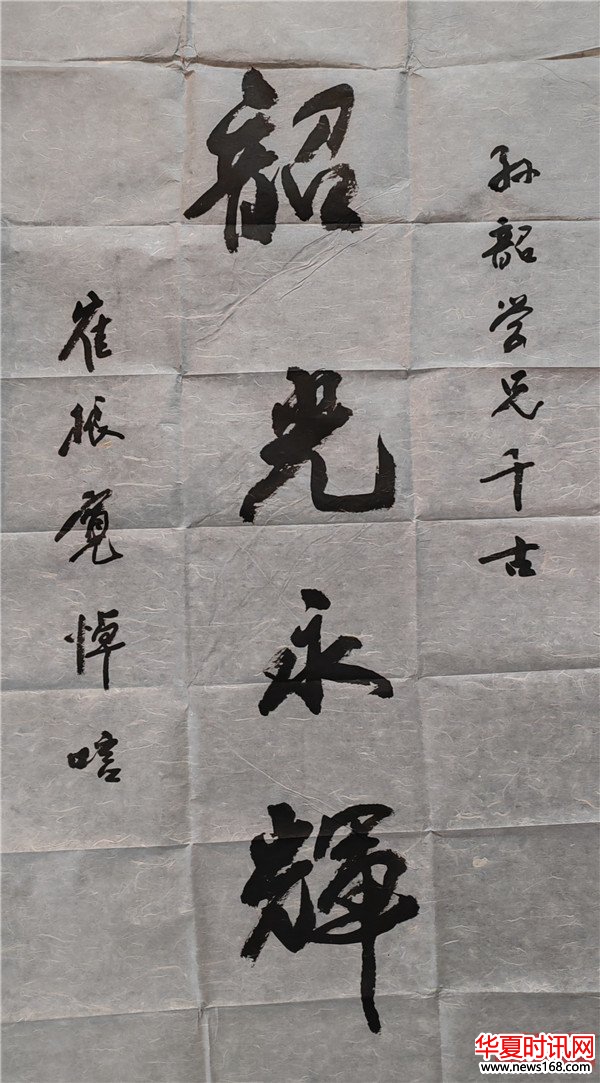 孙韶学兄千古
韶光永輝
崔振寬悼唁
华夏时讯网
www.news168.com